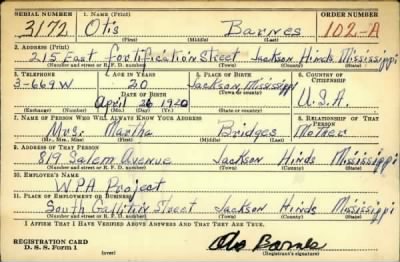 SERIAL NUMBER 1. NAME (Print) ORDER NUMBER
3172 Otis Barnes 102-A
(First) (Middle) (Last)
2. ADDRESS (Print)
215 East Fortification Street Jackson Hinds Mississippi
(Number and street or R. F. D. number) (Town) (County) (State)
3. TELEPHONE 4. AGE IN YEARS 5. PLACE OF BIRTH 6. COUNTRY OF CITIZENSHIP
3-669W 20 Jackson
DATE OF BIRTH (Town or county) Mississippi U.S.A.
April 26 1920
(Exchange) (Number) (Mo.) (Day) (Yr.) (State or country)
7. NAME OF PERSON WHO WILL ALWAYS KNOW YOUR ADDRESS 8. RELATIONSHIP OF THAT PERSON
Mrs. Martha Bridges Mother
(Mr., Mrs., Miss) (First) (Middle) (Last)
9. ADDRESS OF THAT PERSON
819 Salem Avenue Jackson Hinds Mississippi
(Number and street or R. F. D. number) (Town) (County) (State)
10. EMPLOYER'S NAME
WPA Project
11. PLACE OF EMPLOYMENT OR BUSINESS
South Gallitin Street Jackson Hinds Mississippi
(Number and street or R. F. D. number) (Town) (County) (State)
I AFFIRM THAT I HAVE VERIFIED ABOVE ANSWERS AND THAT THEY ARE TRUE.
REGISTRATION CARD
D. S. S. Form 1
Otis Barnes
(Registrant's signature)